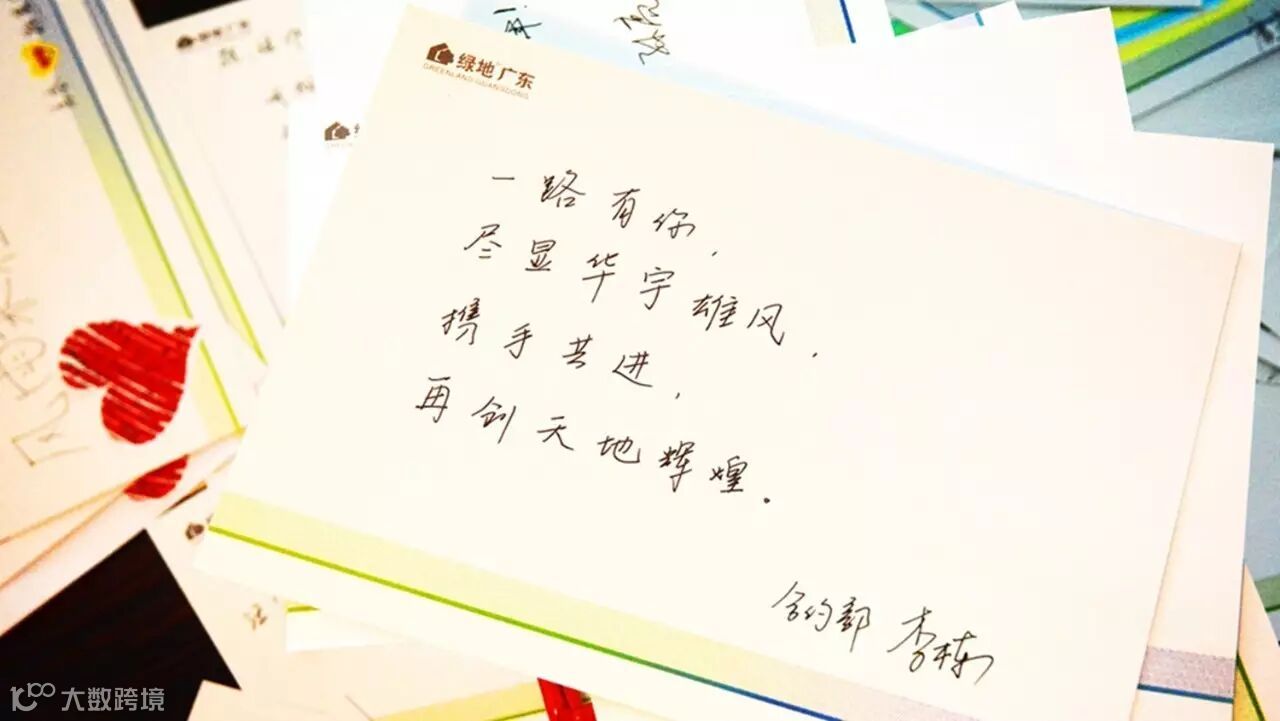 绿地 广东
GREENLAND GUANGDONG
一路有你，
尽显华宇雄风，
携手共进，
再创天地辉煌。
合约部 李栋
大数跨境